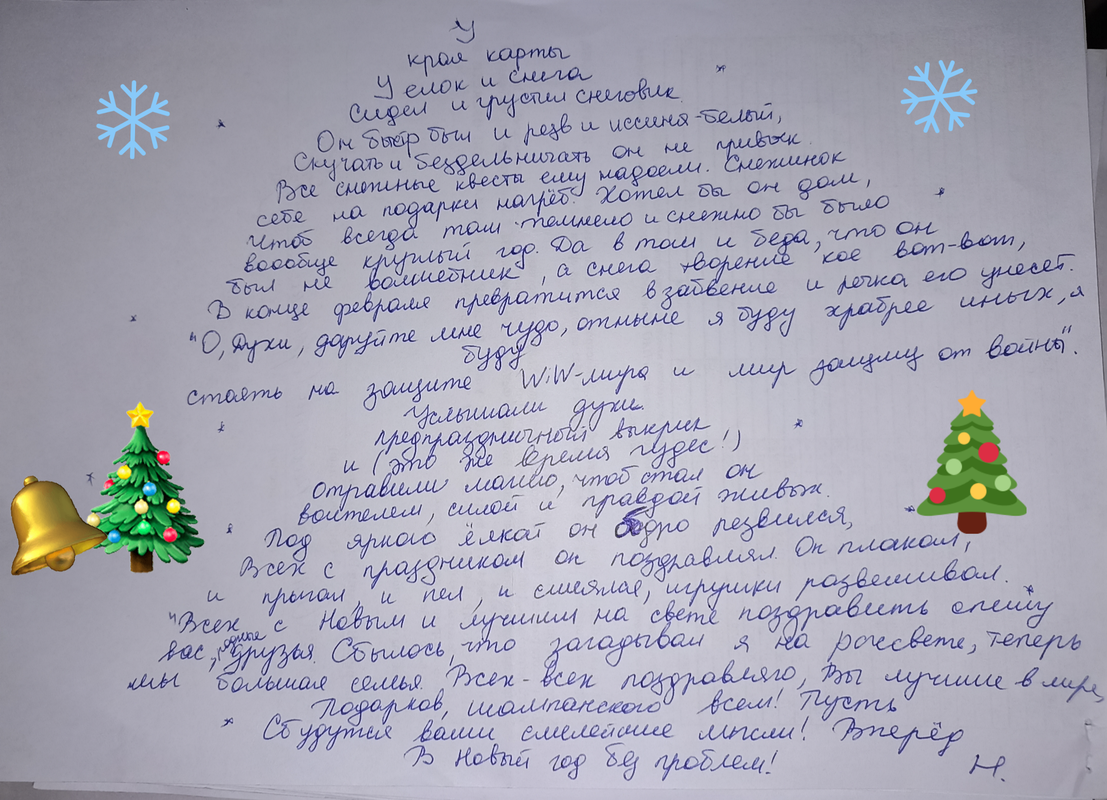 У
края карты
У елок и снега
Сидел и грустил снеговик.
Он быстр был и резв и иссиня-белый,
Скучать и бездельничать он не привык.
Все снежные квесты ему надоели. Снежинок
себе на подарки нагрёб. Хотел бы он дом,
Чтоб всегда там темнело и снежно бы было
вообще круглый год. Да в том и беда, что он
был не волшебник, а снега творение кое вот-вот,
В конце февраля превратится в забвение и речка его унесёт.
"О, Духи, даруйте мне чудо, отныне я буду храбрее иных, я
буду
стоять на защите WiW-мира и мир защищу от войны".
Услышали духи
предпраздничный выкрик
и (это же время чудес!)
Отправили магию, чтоб стал он
воителем, силой и правдой живых.
Под яркою ёлкой он бодро резвился,
Всех с праздником он поздравлял. Он плакал,
и прыгал, и пел, и смеялся, игрушки развешивал.
"Всех с Новым и лучшим на свете поздравить спешу
вас, родные друзья. Сбылось, что загадывал я на рассвете, теперь
мы большая семья. Всех-всех поздравляю, Вы лучшие в мире,
Подарков, шампанского всем! Пусть
Сбудутся ваши смелейшие мысли! Вперёд
В Новый год без проблем!
Н.